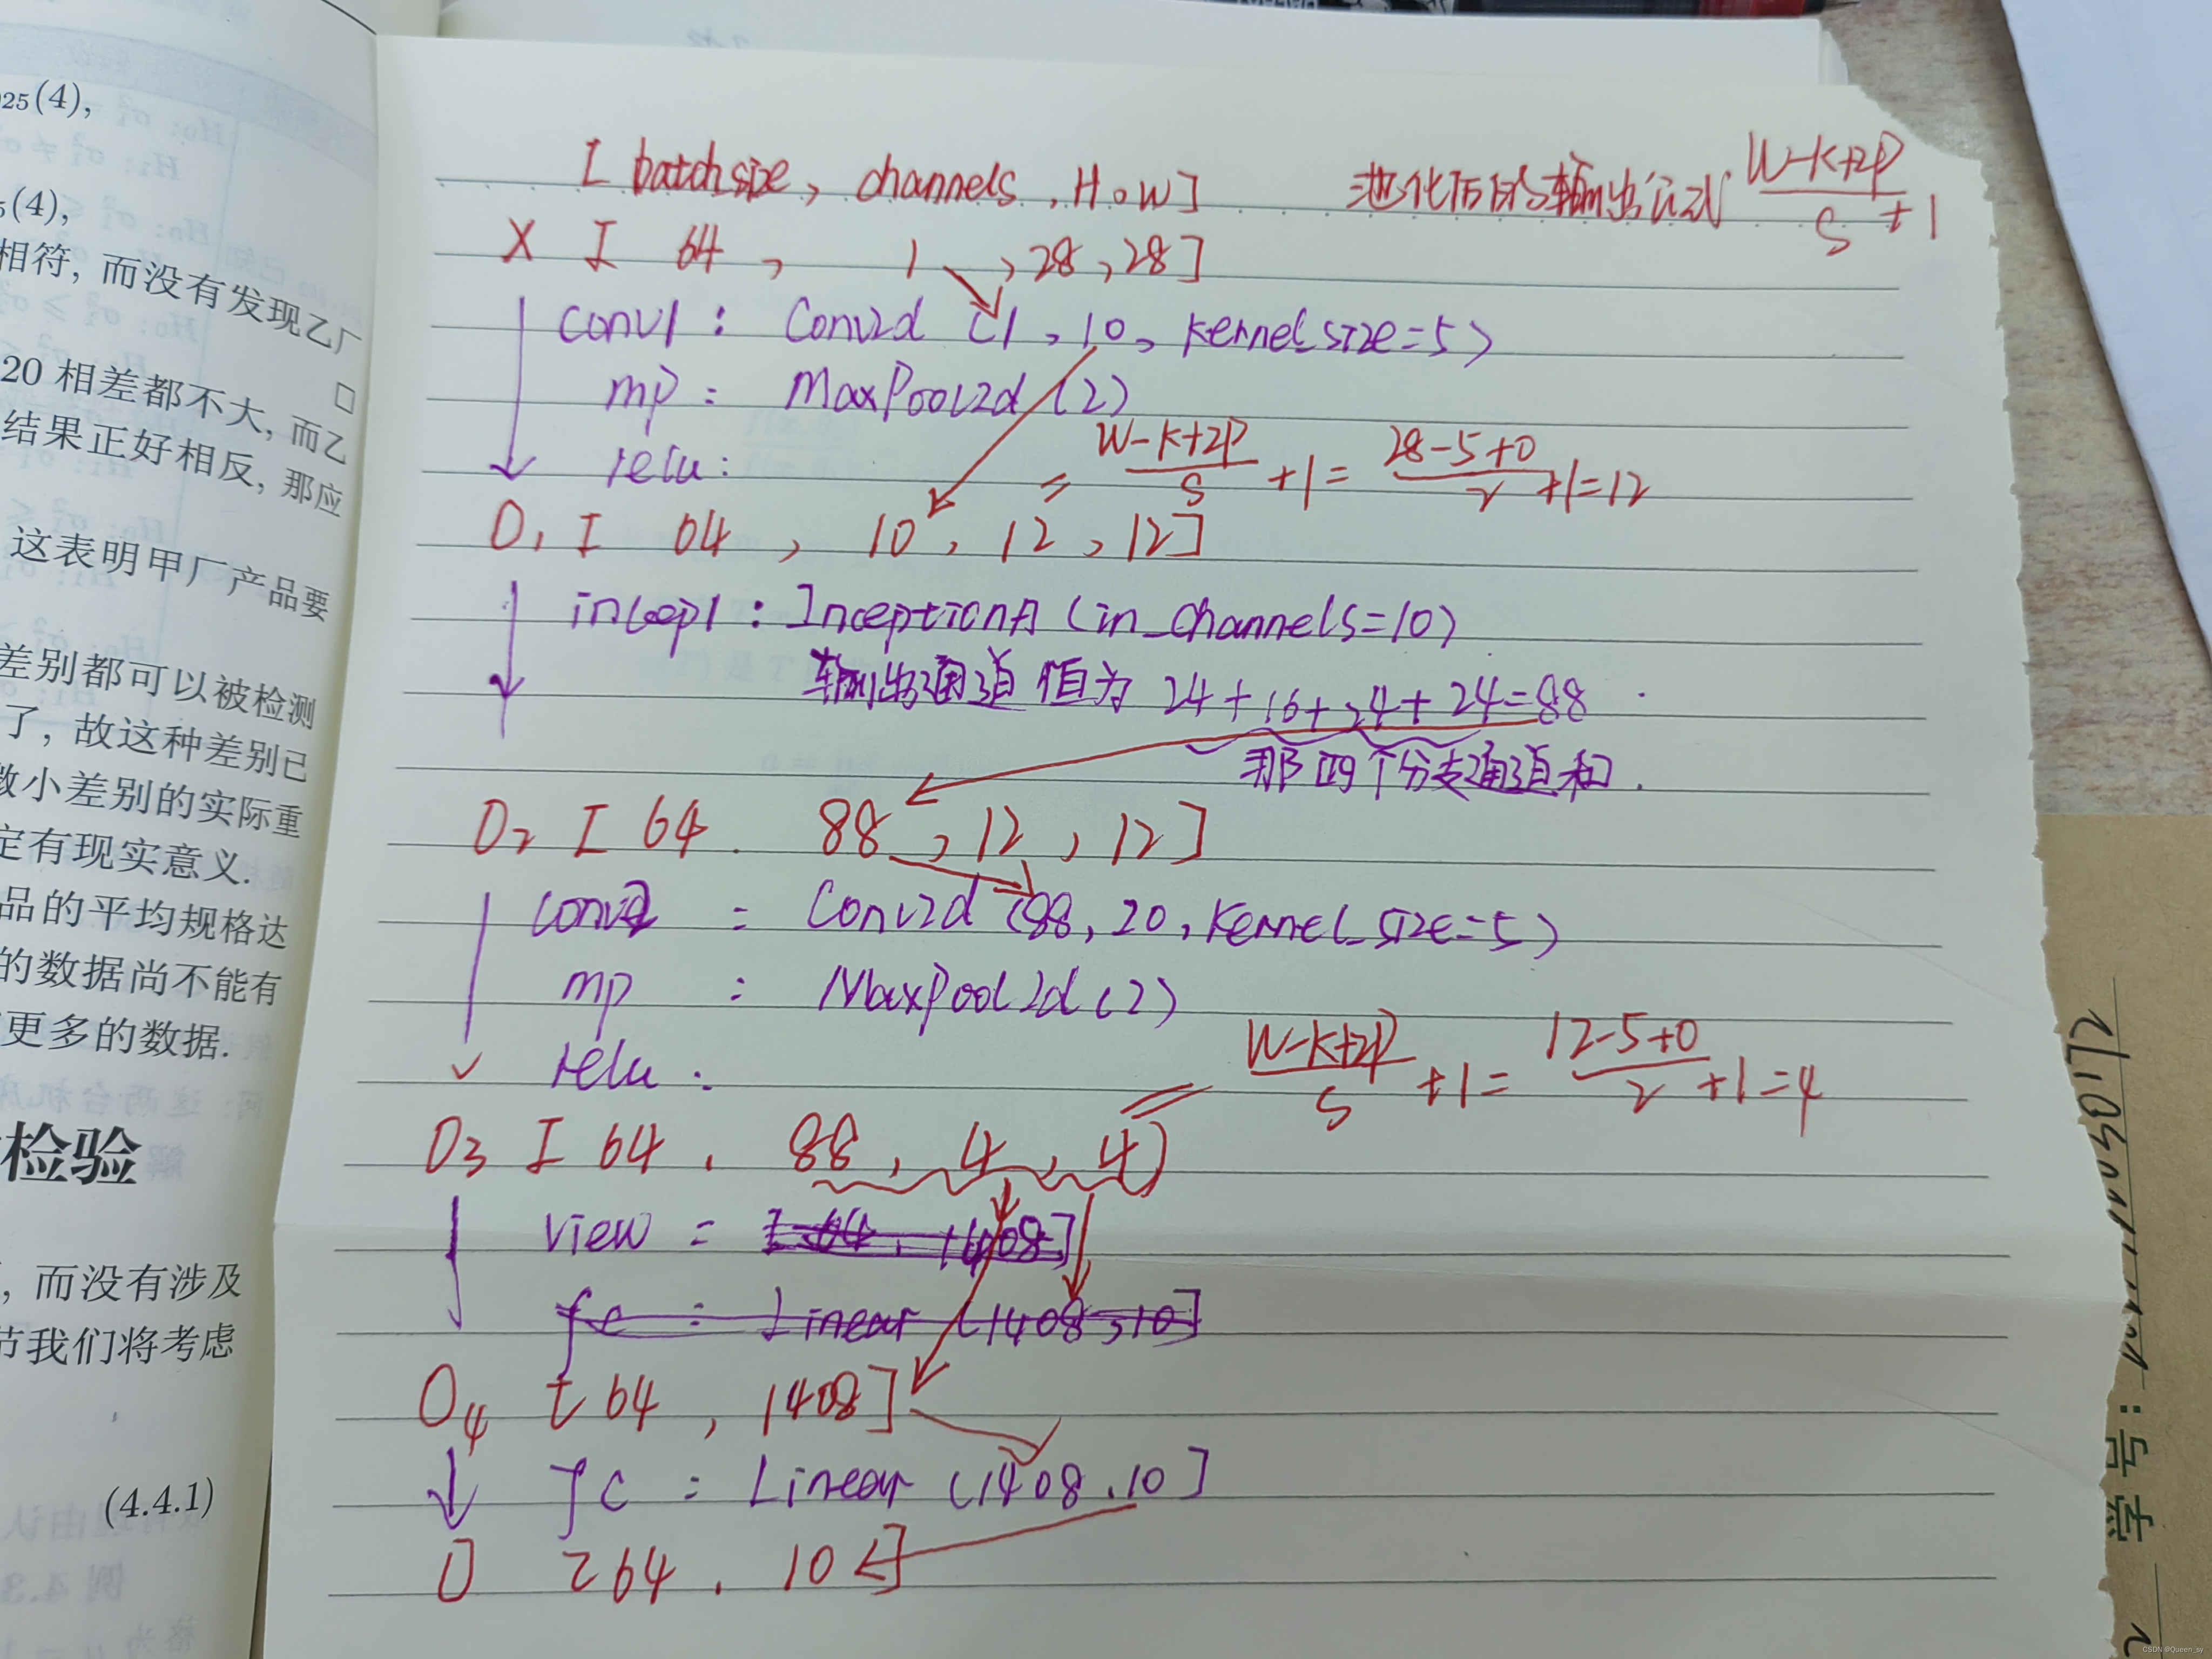 025(4),
5(4),
相符, 而没有发现乙厂
□
20 相差都不大, 而乙
结果正好相反, 那应
这表明甲厂产品要
差别都可以被检测
了, 故这种差别已
微小差别的实际重
定有现实意义.
品的平均规格达
的数据尚不能有
更多的数据.
检验
, 而没有涉及
节我们将考虑
(4.4.1)
[ batchsize, channels, H, W ]
池化后的输出公式 (W-K+2P)/S +1
X [ 64, 1, 28, 28 ]
conv1 : Conv2d (1, 10, kernel size=5)
mp : MaxPool2d (2)
relu :
= (W-K+2P)/S +1 = (28-5+0)/2 +1=12
O1 [ 64, 10, 12, 12 ]
incep1 : InceptionA (in_channels=10)
输出通道值为 24+16+24+24=88
那四个分支通道和.
O2 [ 64. 88, 12, 12 ]
conv2 = Conv2d (88, 20, kernel_size=5)
mp : MaxPool2d (2)
relu :
= (W-K+2P)/S +1= (12-5+0)/2 +1=4
O3 [ 64. 88, 4, 4)
view = [ 64, 1408]
fc : Linear (1408,10]
O4 [ 64, 1408]
fc : Linear (1408.10]
O [ 64. 10 ]
学号:
CSDN @Queen_sy